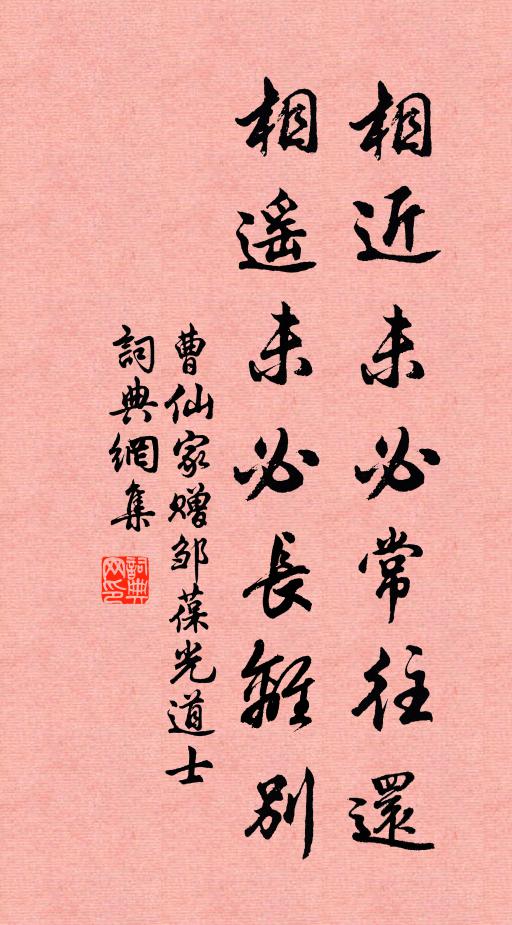 相近未必常往還
相遥未必長離別
曹仙家赠邹葆光道士
詞典網集
詞典网印